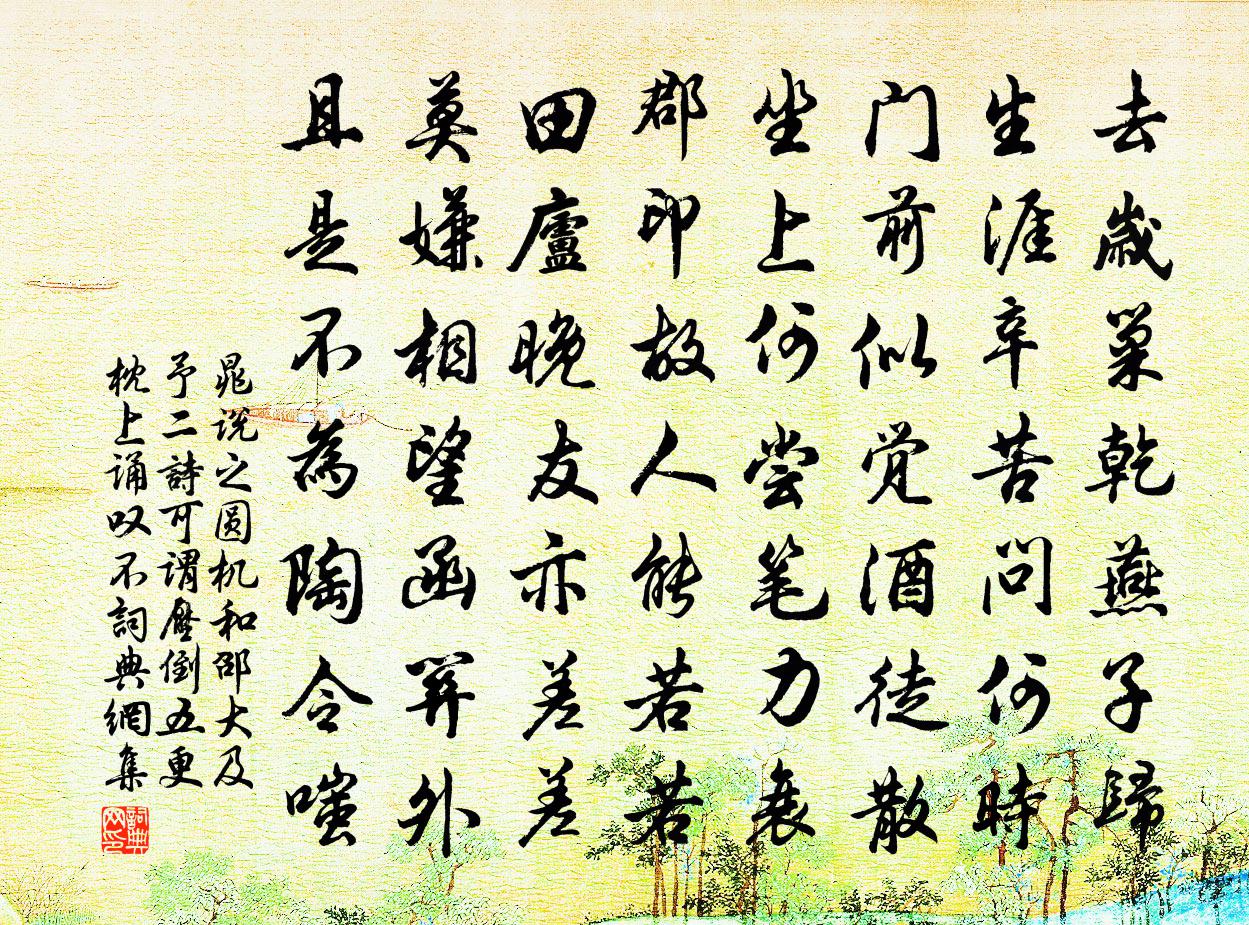 去歲巢乾燕子歸
生涯辛苦问何時
门前似觉酒徒散
坐上何尝笔力衰
郡印故人能若若
田廬晚友亦差差
莫嫌相望函关外
且是不為陶令嗤
晁说之圆机和邵大及
予二詩可謂压倒五更
枕上诵叹不詞典網集
詞典
网印